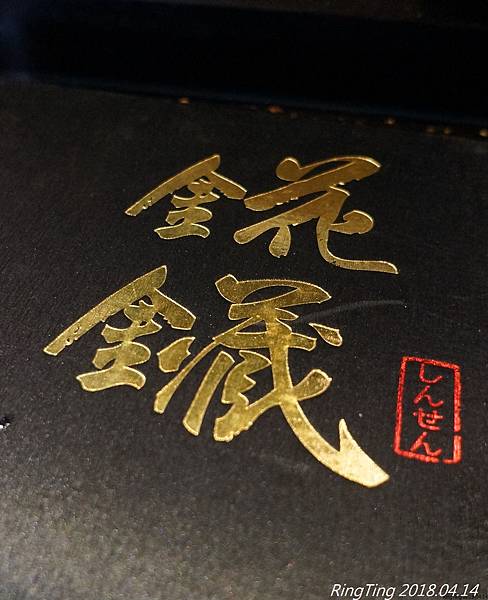 錵
鑶
しんせん
RingTing 2018.04.14